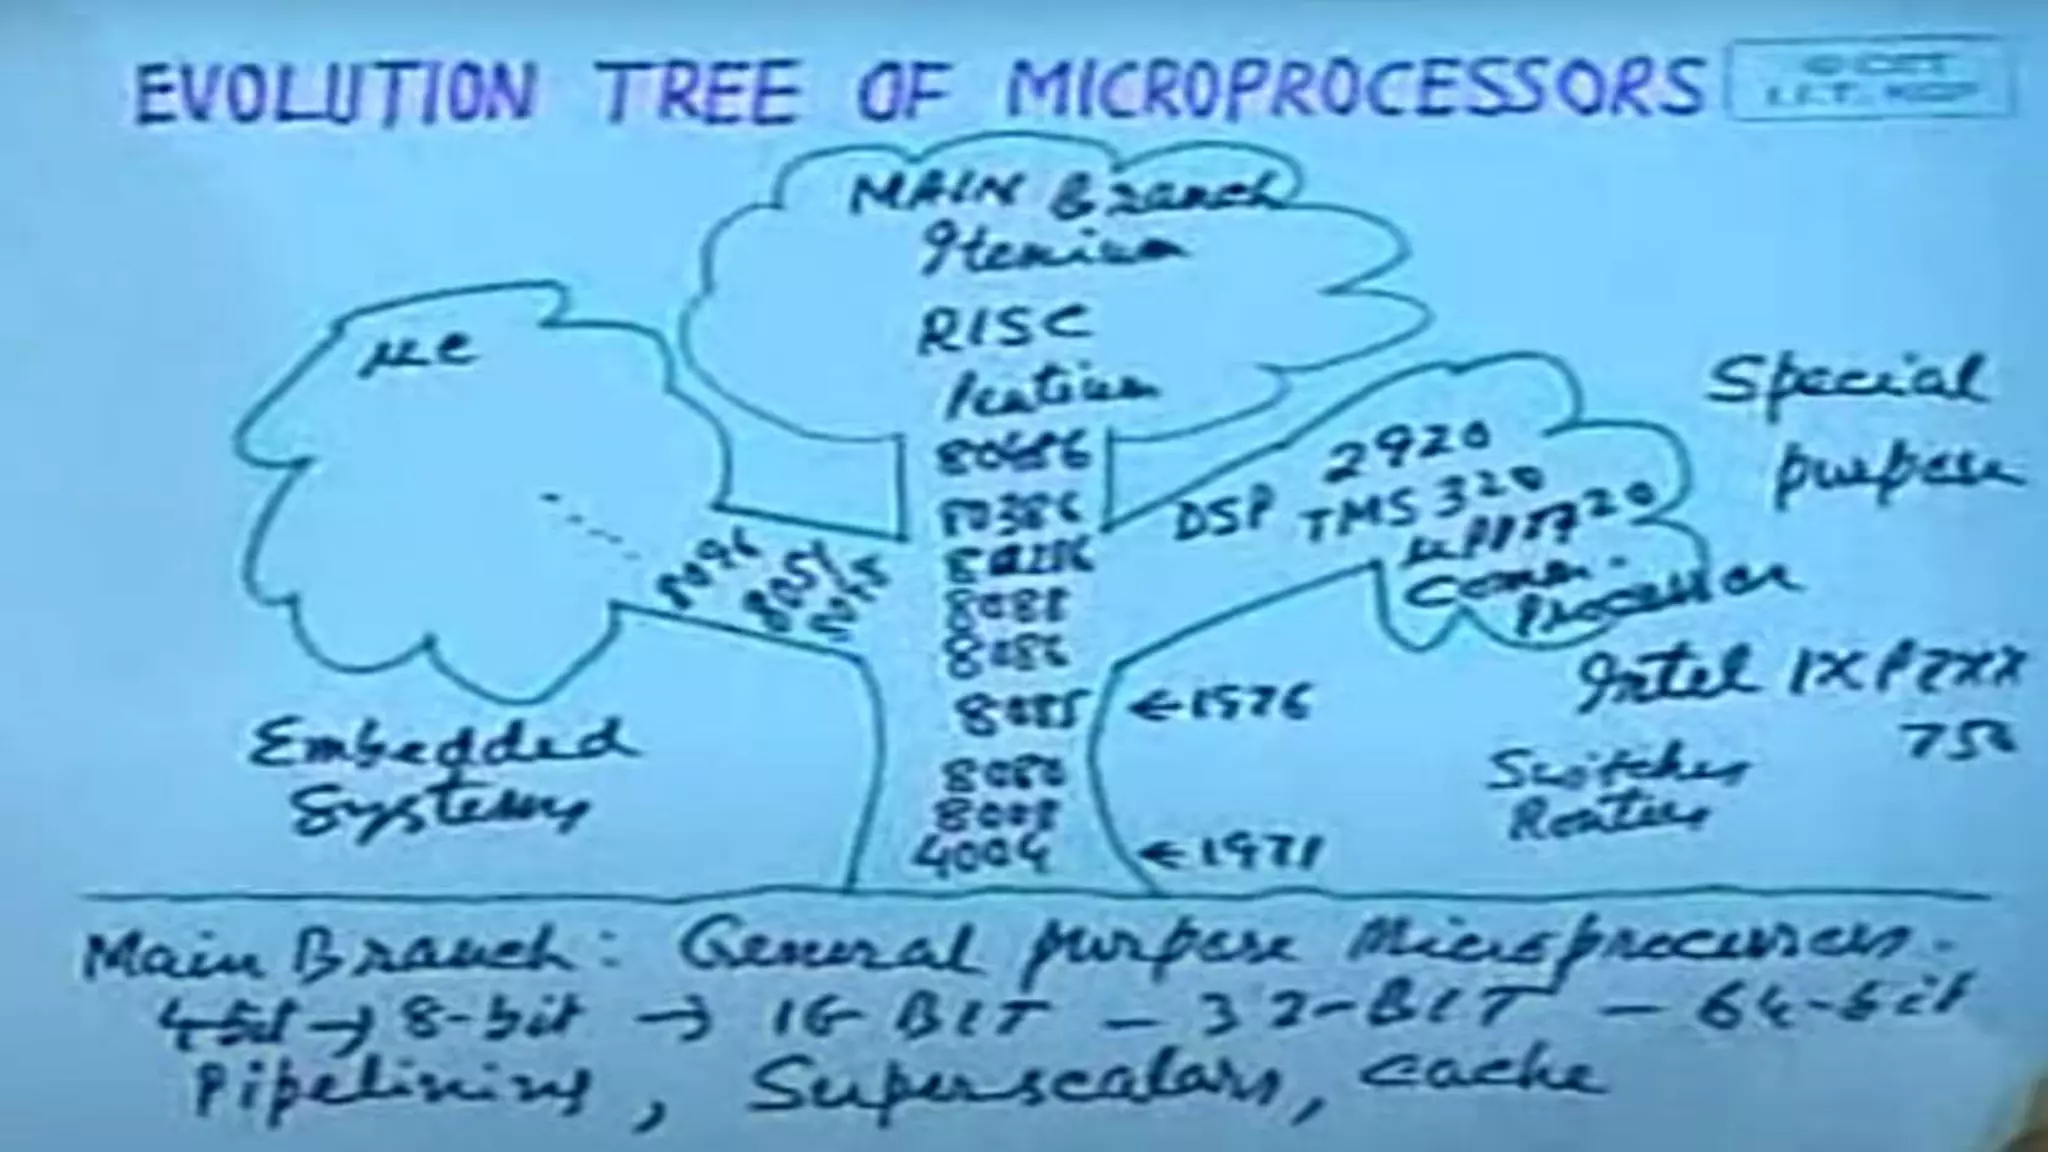 EVOLUTION TREE OF MICROPROCESSORS
© CET
I.I.T., KGP
MAIN Branch
Itenium
RISC
Pentium
80486
80386
80286
8088
8086
8085 ← 1976
8080
8008
4004 ← 1971
μc
8096
8051/
Embedded
Systems
DSP
2920
TMS 320
Comm.
Processor
Special
purpose
Intel IXP
750
Switches
Routers
Main Branch: General purpose Microprocessors.
4-bit → 8-bit → 16-BIT - 32-BIT - 64-bit
Pipelining, Superscalar, cache